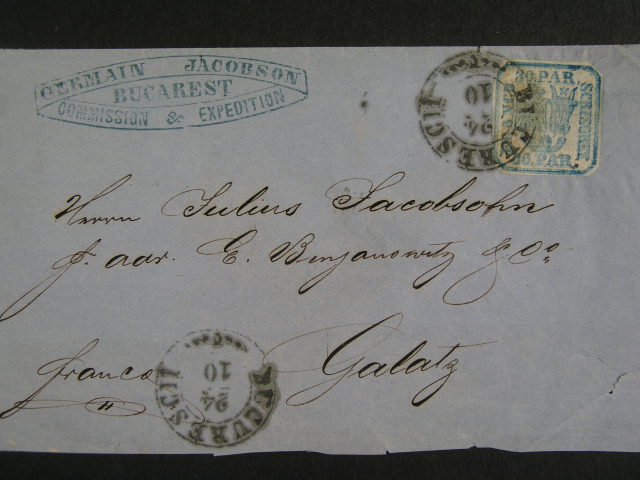 GERMAIN JACOBSON
BUCAREST
COMMISSION & EXPEDITION
BUCURESCII
10
24
30 PAR
30 PAR.
Herrn Julius Jacobsohn
p. adr. E. Benjanowitz & Co
franco
Galatz
BUCURESCII
10
24